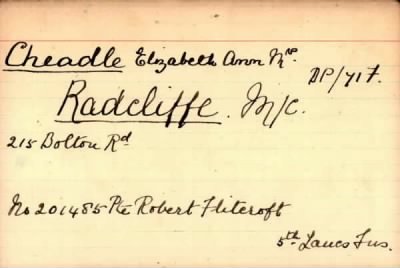 Cheadle Elizabeth Ann Mrs.
DP/717.
Radcliffe. M/c.
215 Bolton Rd
No 201485 Pte Robert Flitcroft
5th Lancs Fus.